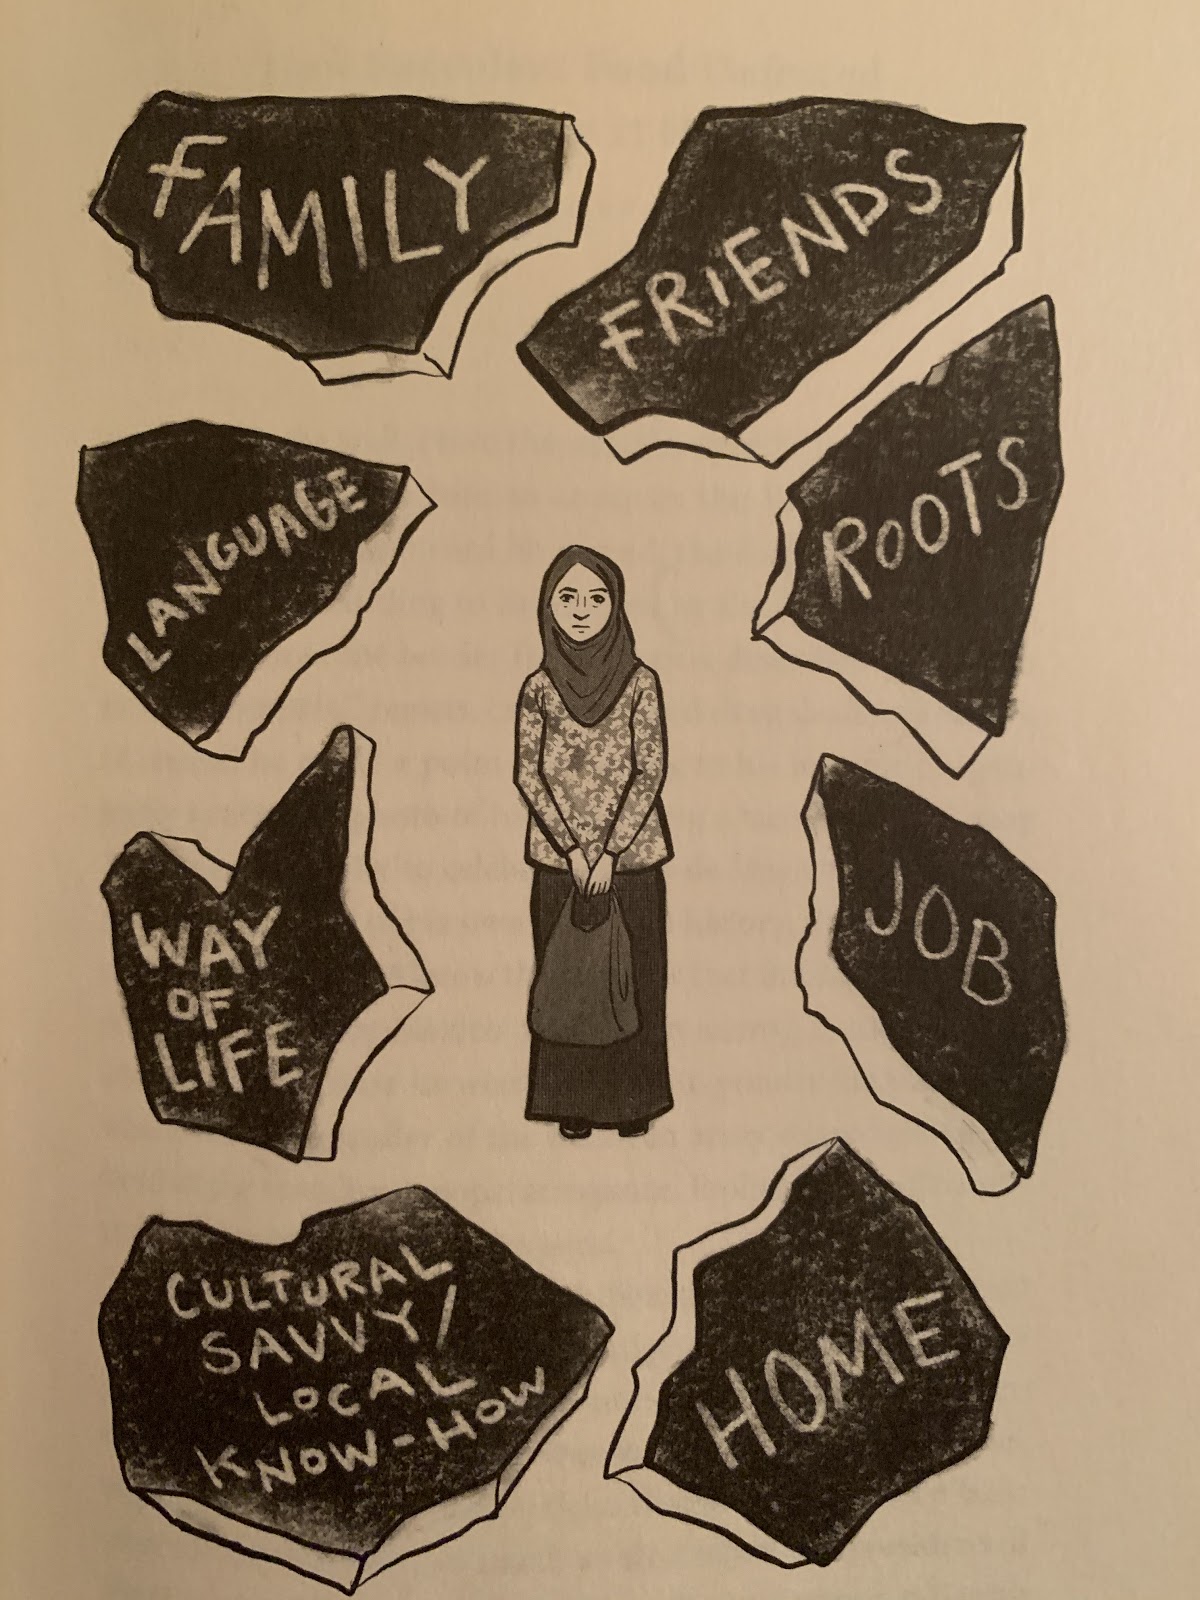 FAMILY
FRIENDS
LANGUAGE
ROOTS
WAY
OF
LIFE
JOB
CULTURAL
SAVVY/
LOCAL
KNOW-HOW
HOME